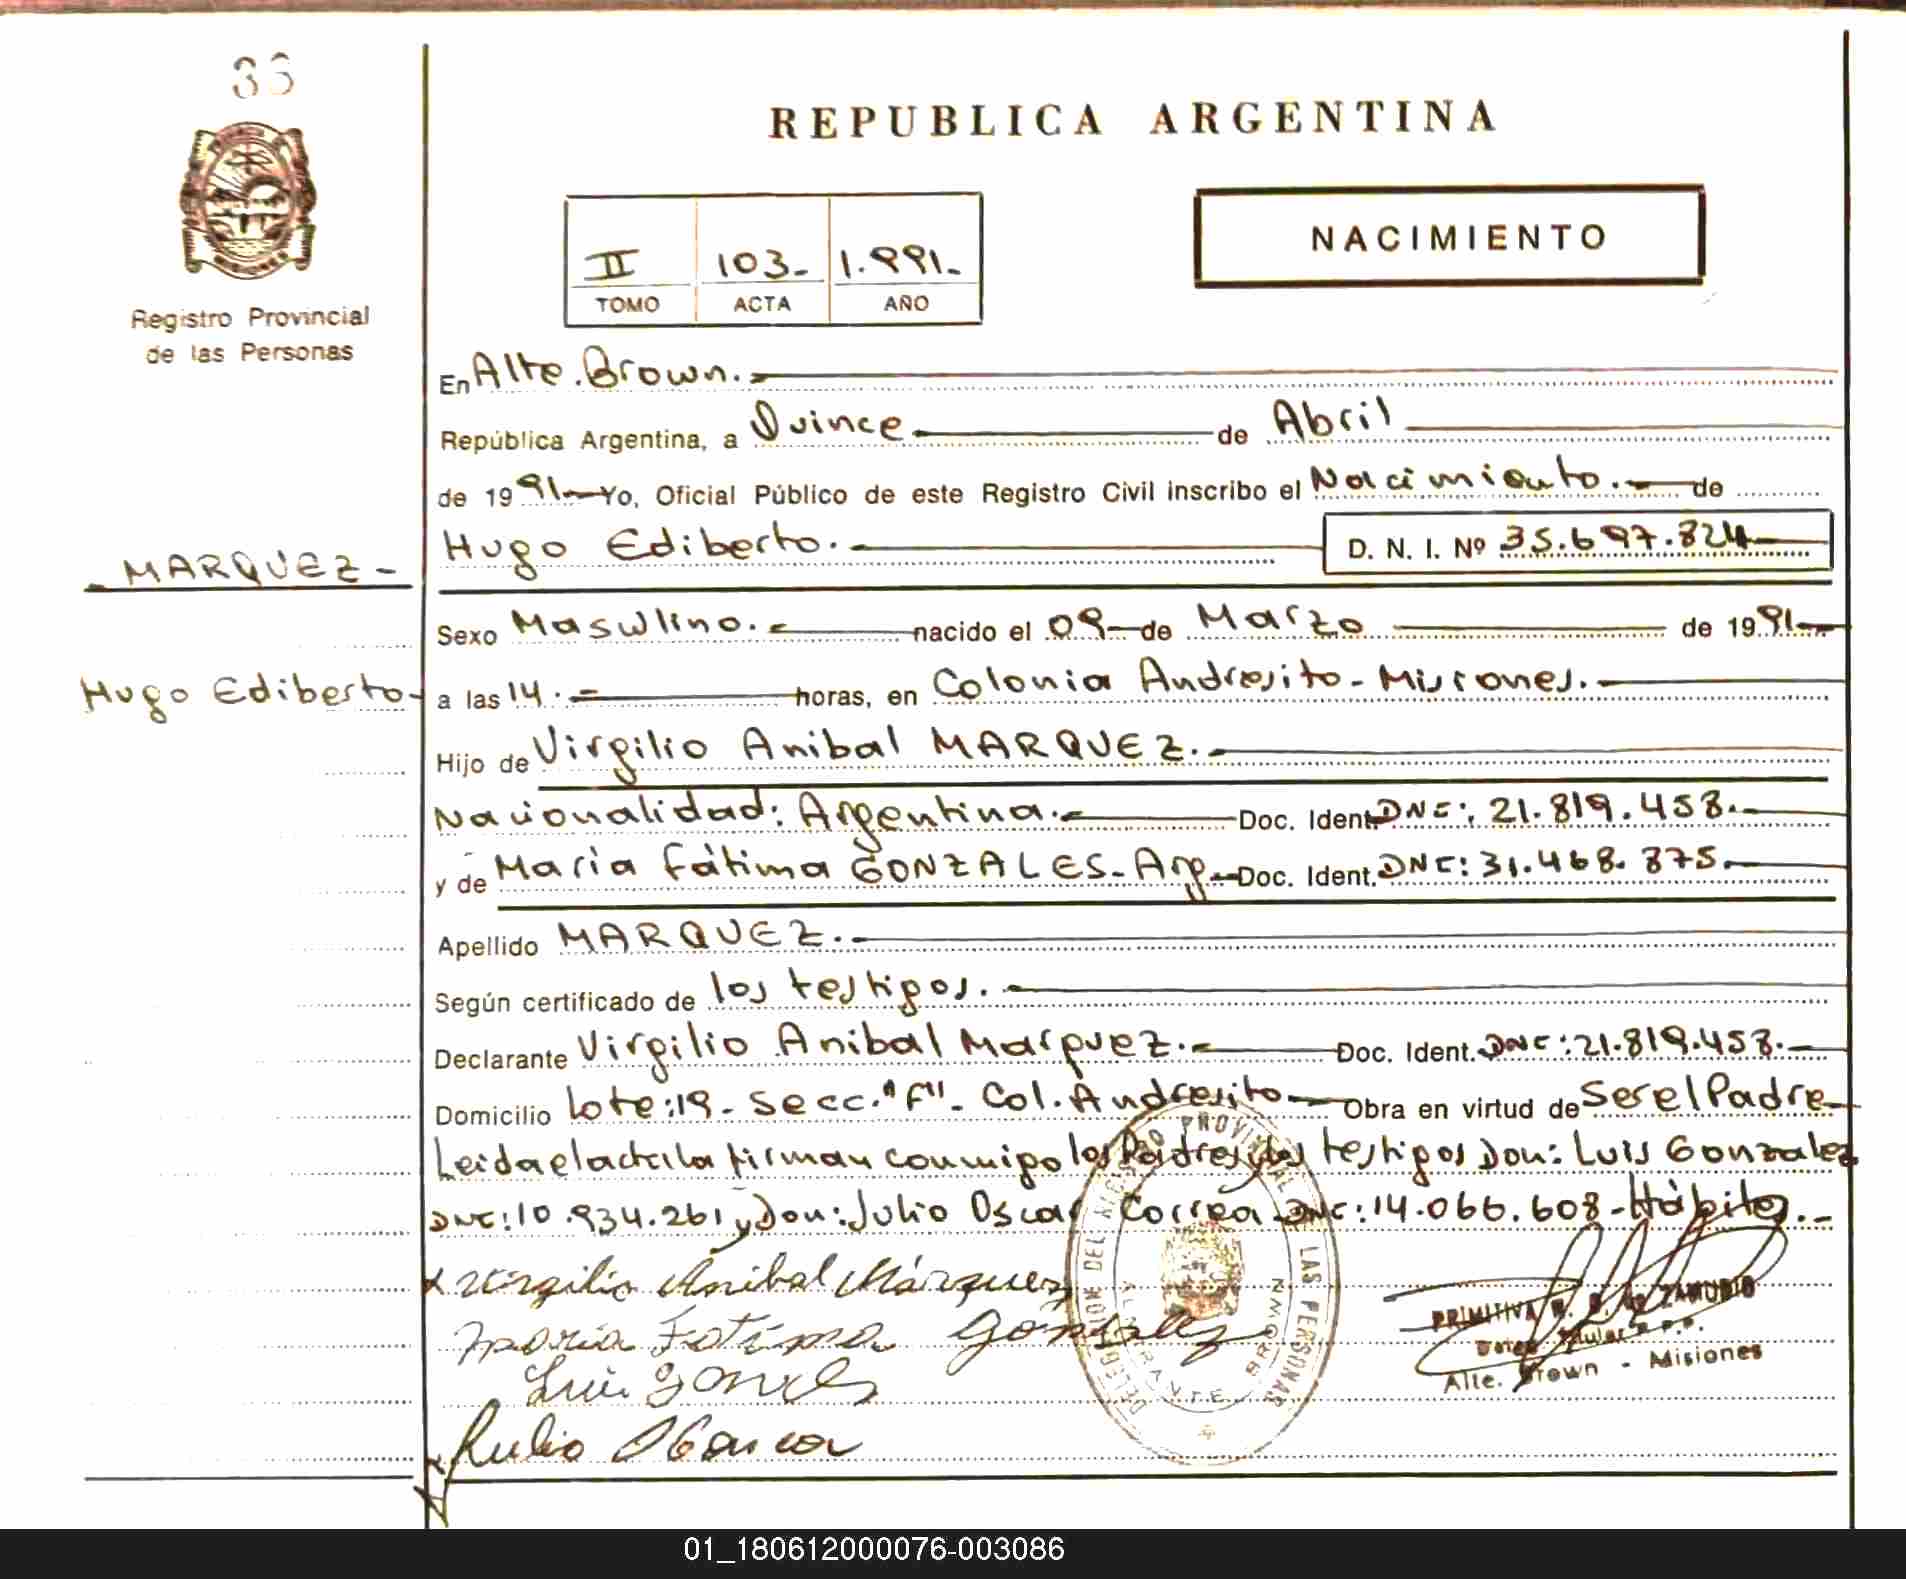 36
REPUBLICA ARGENTINA
NACIMIENTO
II 103- 1.991-
TOMO ACTA AÑO
Registro Provincial
de las Personas
En Alte. Brown.-
República Argentina, a Quince de Abril
de 1991- Yo, Oficial Público de este Registro Civil inscribo el Nacimiento.- de
Hugo Ediberto.- D. N. I. Nº 35.697.824
- MARQUEZ -
Sexo Masculino.- nacido el 09- de Marzo de 1991-
Hugo Ediberto-
a las 14.- horas, en Colonia Andresito - Misiones.-
Hijo de Virgilio Anibal MARQUEZ.-
Nacionalidad: Argentina.- Doc. Ident. DNI: 21.819.458.-
y de María Fátima GONZALES - Arg- Doc. Ident. DNI: 31.468.875.-
Apellido MARQUEZ.-
Según certificado de los testigos.-
Declarante Virgilio Anibal Marquez.- Doc. Ident. DNI: 21.819.458.-
Domicilio Lote: 19 - Secc. "F" - Col. Andresito- Obra en virtud de Ser el Padre-
Leida el acta la firman conmigo los Padres y los testigos Don: Luis Gonzalez
DNI: 10.934.261 y Don: Julio Oscar Correa DNI: 14.066.608 - Hábiles.-
Virgilio Anibal Márquez
Maria Fatima Gonzalez
Luis
DELEGACION DEL REGISTRO PROVINCIAL DE LAS PERSONAS
ALMIRANTE BROWN
PRIMITIVA ZAMUDIO
Titular
Alte. Brown - Misiones
01_180612000076-003086